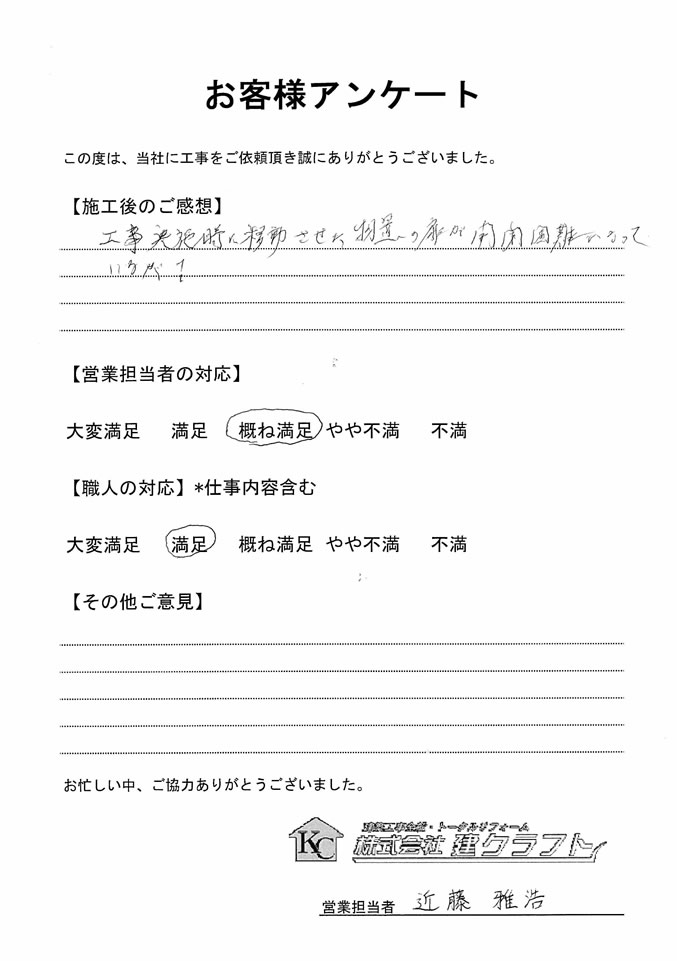 お客様アンケート
この度は、当社に工事をご依頼頂き誠にありがとうございました。
【施工後のご感想】
工事実施時に移動させた物置の扉が開閉困難になって
いるが!
【営業担当者の対応】
大変満足 満足 概ね満足 やや不満 不満
【職人の対応】*仕事内容含む
大変満足 満足 概ね満足 やや不満 不満
【その他ご意見】
お忙しい中、ご協力ありがとうございました。
KC
建築工事全般・トータルリフォーム
株式会社 建クラフト
営業担当者 近藤 雅浩